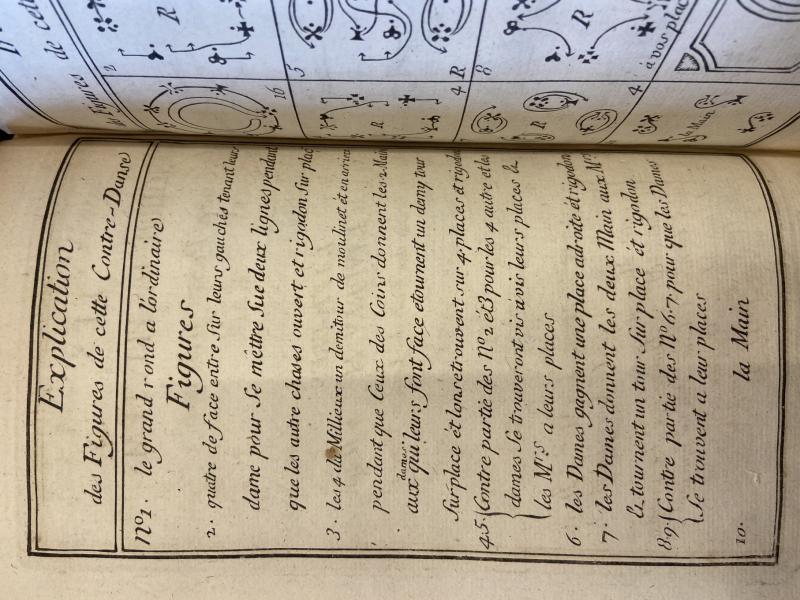 Explication
des Figures de cette Contre-Danse
nº1. le grand rond a l'ordinaire
Figures
2. quatre de face entre sur leurs gauchés tenant leurs
dame pour se méttre sue deux lignes pendant
que les autre chases ouvert et rigodon sur plac
3. les 4 du Millieux un demitour de moulinet et en arriere
pendant que Ceux des Coins donnent les 2 Main
aux dames qui leurs font face etournent un demy tour
sur place et l'onse trouvent sur 4 places et rigodon
4.5. Contre partie des Nº 2 et 3 pour les 4 autre et les
dames se trouveront vis a vis leurs places &
les Mrs a leurs places
6. les Dames gagnent une place adroite et rigodon
7. les Dames donnent les deux Main aux Mrs
& tournent un tour sur place et rigodon
8.9. Contre partie des Nº 6.7. pour que les Dames
se trouvent a leur places
10. la Main
de cette
des Figures
2
R
16
5
R
R
4
8
R
R
4
à vos plac
la Main